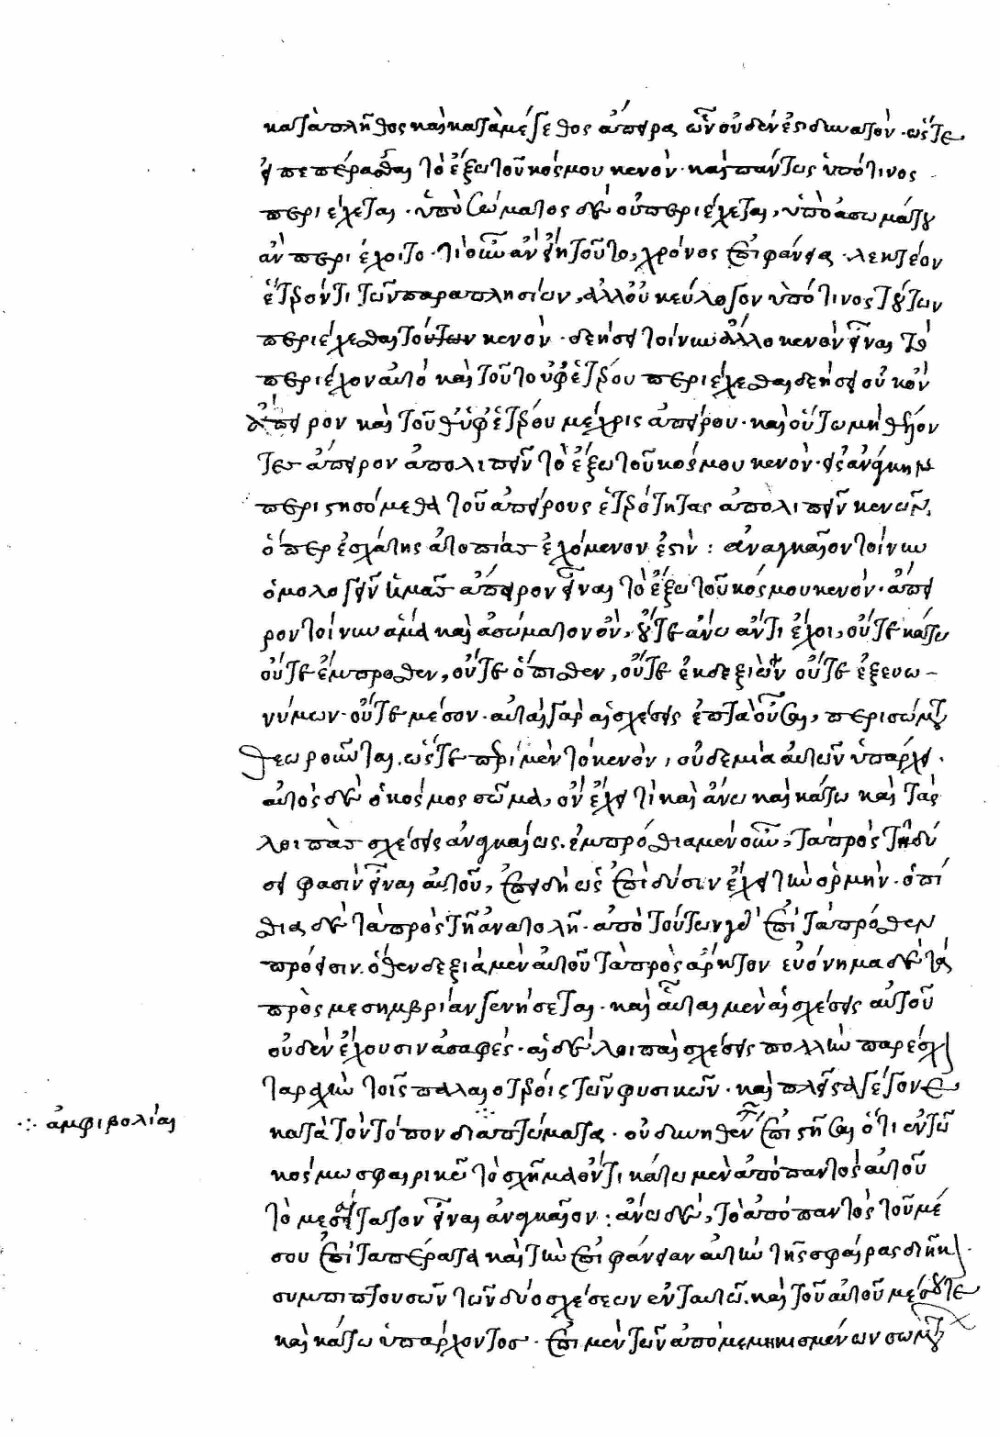 κατὰ πλῆθος καὶ κατὰ μέγεθος ἄπειρα ὧν οὐδενέστι δυνατόν· ὥστε
πεπεράσθαι τὸ ἔξω τοῦ κόσμου κενόν· καὶ πάντως ὑπό τινος
περιέχεται· ὑπὸ σώματος δὲ οὐ περιέχεται, ὑπὸ ἀσωμάτου
ἂν περιέχοιτο· τί οὖν ἂν εἴη τοῦτο, χρόνος ἐπιφάνεια· λεκτέον
ἕτερόν τι τῶν παραπλησίων, ἀλλ' οὐκ εὔλογον ὑπό τινος τούτων
περιέχεσθαι τούτων κενόν· δεήσει τοίνυν ἄλλο κενὸν εἶναι τὸ
περιέχον αὐτὸ καὶ τοῦτο ὑφ' ἑτέρου περιέχεσθαι δεήσει οὐ κὸν
ἄπειρον καὶ τοῦθ' ὑφ' ἑτέρου μέχρις ἀπείρου· καὶ οὕτω μὴ θέλον
τες ἄπειρον ἀπολιπεῖν τὸ ἔξω τοῦ κόσμου κενόν· εἰς ἀνάγκην
περιστησόμεθα τοῦ ἀπείρους ἑτερότητας ἀπολιπεῖν κενῶν,
ὅπερ ἐσχάτης ἀτοπίας ἐχόμενον ἐστίν: ἀναγκαῖον τοίνυν
ὁμολογεῖν ἡμᾶς ἄπειρον εἶναι τὸ ἔξω τοῦ κόσμου κενόν· ἄπει
ρον τοίνυν ἅμα καὶ ἀσώματον ὄν, οὔτε ἄνω ἄν τι ἔχοι, οὔτε κάτω
οὔτε ἔμπροσθεν, οὔτε ὄπισθεν, οὔτε ἐκ δεξιῶν οὔτε ἐξ εὐω-
νύμων· οὔτε μέσον· αὗται γὰρ αἱ σχέσεις ἑπτὰ οὖσαι, περὶ σώματα
θεωροῦνται. ὥστε περὶ μὲν τὸ κενόν, οὐδεμία αὐτῶν ὑπάρχει·
αὐτὸς δὲ ὁ κόσμος σῶμα, ὂν ἔχει τι καὶ ἄνω καὶ κάτω καὶ τὰς
λοιπὰς σχέσεις ἀναγκαίως. ἔμπροσθια μὲν οὖν, τὰ πρὸς τῇ δύ
σει φασὶν εἶναι αὐτοῦ, ἐπειδὴ ὡς ἐπὶ δύσιν ἔχει τὴν ὁρμήν· ὀπί
θια δὲ τὰ πρὸς τῇ ἀνατολῇ· ἀπὸ τούτων γὰρ ἐπὶ τὰ πρόσθεν
πρόεισιν. ὅθεν δεξιὰ μὲν αὐτοῦ τὰ πρὸς ἄρκτον εὐώνημα δὲ τὰ
πρὸς μεσημβρίαν γενήσεται· καὶ αὗται μὲν αἱ σχέσεις αὐτοῦ
οὐδὲν ἔχουσιν ἀσαφές· αἱ δὲ λοιπαὶ σχέσεις πολλὴν παρέσχ
ταραχὴν τοῖς παλαιοτέροις τῶν φυσικῶν· καὶ πλεῖστα γέγονε
κατὰ τὸν τόπον διαπτώματα· οὐ δυνηθέντων ἐπιστῆσαι ὅτι ἐν τῷ
∴ ἀμφιβολίαι
κόσμῳ σφαιρικῷ τὸ σχῆμα ὄντι κάτω μὲν ἀπὸ παντὸς αὐτοῦ
τὸ μεσαίτατον εἶναι ἀναγκαῖον: ἄνω δὲ, τὸ ἀπὸ παντὸς τοῦ μέ
σου ἐπὶ τὰ πέρατα καὶ τὴν ἐπιφάνειαν αὐτὴν τῆς σφαίρας διήκ
συμπιπτουσῶν τῶν δύο σχέσεων ἐν ταυτῷ. καὶ τοῦ αὐτοῦ μέσου τε
καὶ κάτω ὑπάρχοντος· ἐπὶ μὲν τῶν ἀπομεμηκισμένων σωμάτων